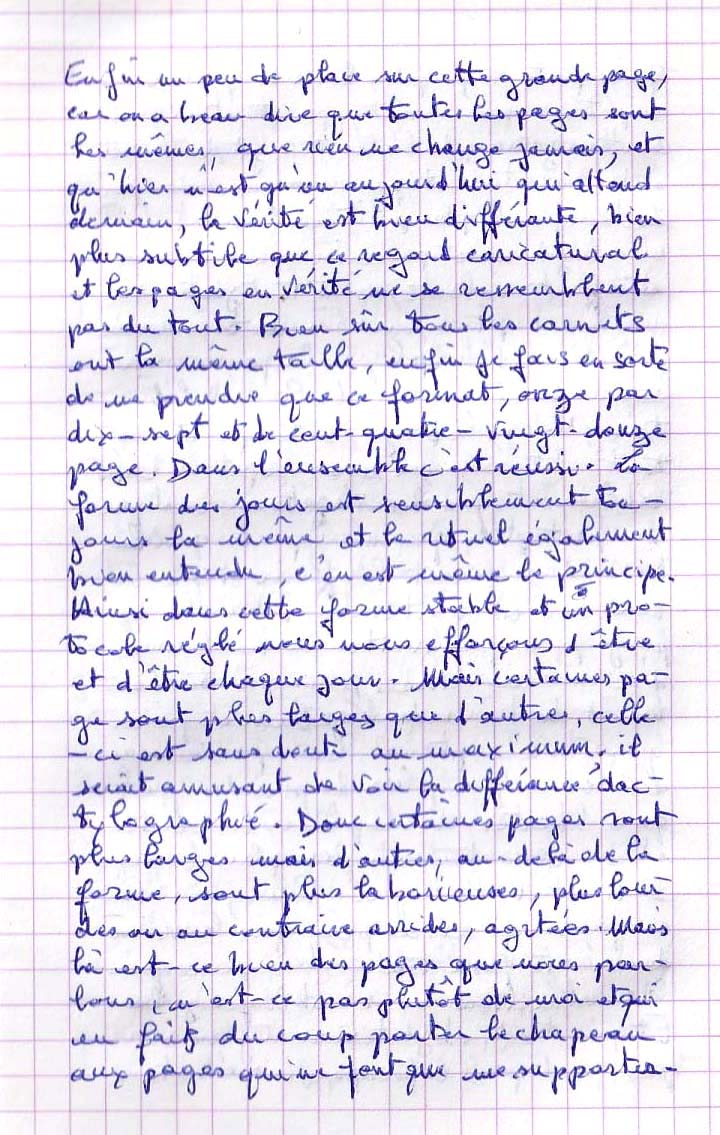 Enfin un peu de place sur cette grande page,
car on a beau dire que toutes les pages sont
les mêmes, que rien ne change jamais, et
qu'hier n'est qu'un aujourd'hui qui attend
demain, la vérité est bien différante, bien
plus subtile que ce regard caricatural
et les pages en vérité ne se ressemblent
pas du tout. Bien sûr tous les carnets
ont la même taille, enfin je fais en sorte
de ne prendre que ce format, onze par
dix-sept et de cent-quatre-vingt-douze
page. Dans l'ensemble c'est réussi. La
forme des jours est sensiblement tou-
jours la même et le rituel également
bien entendu, c'en est même le principe.
Ainsi dans cette forme stable et un pro-
tocole réglé nous nous efforçons d'être
et d'être chaque jour. Mais certaines pa-
ge sont plus larges que d'autres, celle
-ci est sans doute au maximum, il
serait amusant de voir la différance dac-
tylographié. Donc certaines pages sont
plus larges mais d'autres, au-delà de la
forme, sont plus laborieuses, plus lour
des ou au contraire arrides, agitées. Mais
là est-ce bien des pages que nous par-
lons, n'est-ce pas plutôt de moi et qui
en fait du coup porter le chapeau
aux pages qui ne font que me supporter-